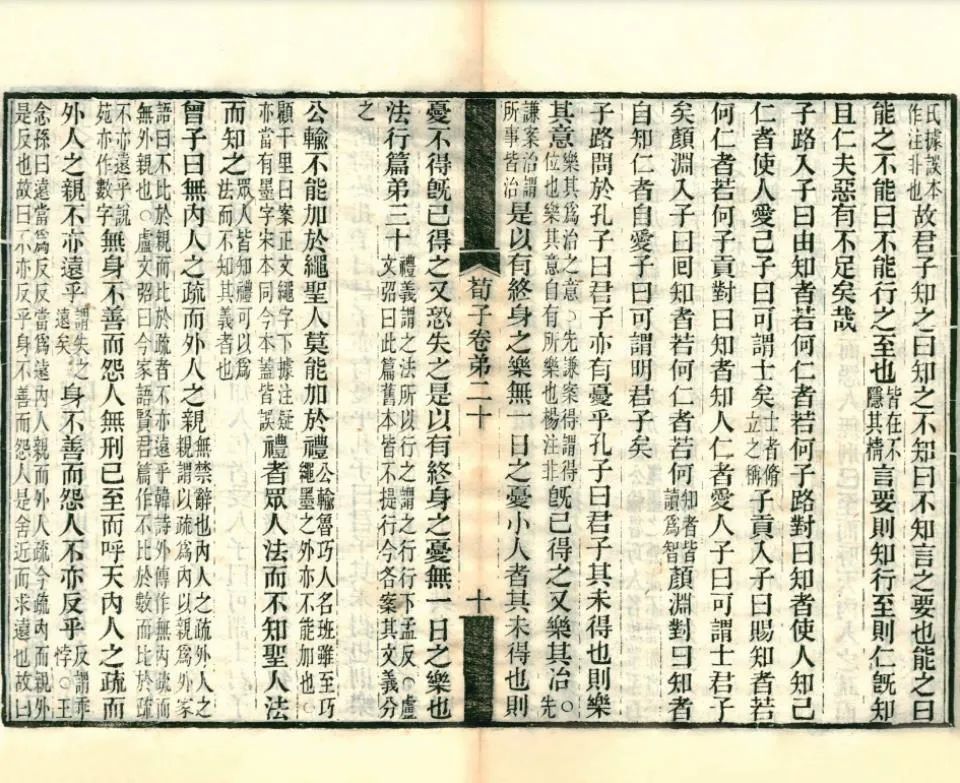 氏據誤本作注非也故君子知之曰知之不知曰不知言之要也能之曰
能之不能曰不能行之至也皆在不隱其情言要則知行至則仁旣知
且仁夫惡有不足矣哉
子路入子曰由知者若何仁者若何子路對曰知者使人知己
仁者使人愛己子曰可謂士矣士者脩立之稱子貢入子曰賜知者若
何仁者若何子貢對曰知者知人仁者愛人子曰可謂士君子
矣顏淵入子曰回知者若何仁者若何知者皆讀爲智顏淵對曰知者
自知仁者自愛子曰可謂明君子矣
子路問於孔子曰君子亦有憂乎孔子曰君子其未得也則樂
其意樂其爲治之意○先謙案得謂得位也樂其意自有所樂也楊注非旣已得之又樂其治○先
謙案治謂所事皆治是以有終身之樂無一日之憂小人者其未得也則
荀子卷弟二十 十
憂不得旣已得之又恐失之是以有終身之憂無一日之樂也
法行篇弟三十禮義謂之法所以行之謂之行行下孟反○盧文弨曰此篇舊本皆不提行今各案其文義分
之
公輸不能加於繩聖人莫能加於禮公輸魯巧人名班雖至巧繩墨之外亦不能加也○
顧千里曰案正文繩字下據注疑亦當有墨字宋本同今本蓋皆誤禮者眾人法而不知聖人法
而知之眾人皆知禮可以爲法而不知其義者也
曾子曰無內人之疏而外人之親無禁辭也內人之疏外人之親謂以疏爲內以親爲外家
語曰不比於親而比於疏者不亦遠乎韓詩外傳作無內疏而無外親也○盧文弨曰今家語賢君篇作不比於數而比於疏
不亦遠乎說苑亦作數字無身不善而怨人無刑己至而呼天內人之疏而
外人之親不亦遠乎謂失之遠矣身不善而怨人不亦反乎反謂乖悖○王
念孫曰遠當爲反反當爲遠內人親而外人疏今疏內而親外是反也故曰不亦反乎身不善而怨人是舍近而求遠也故曰